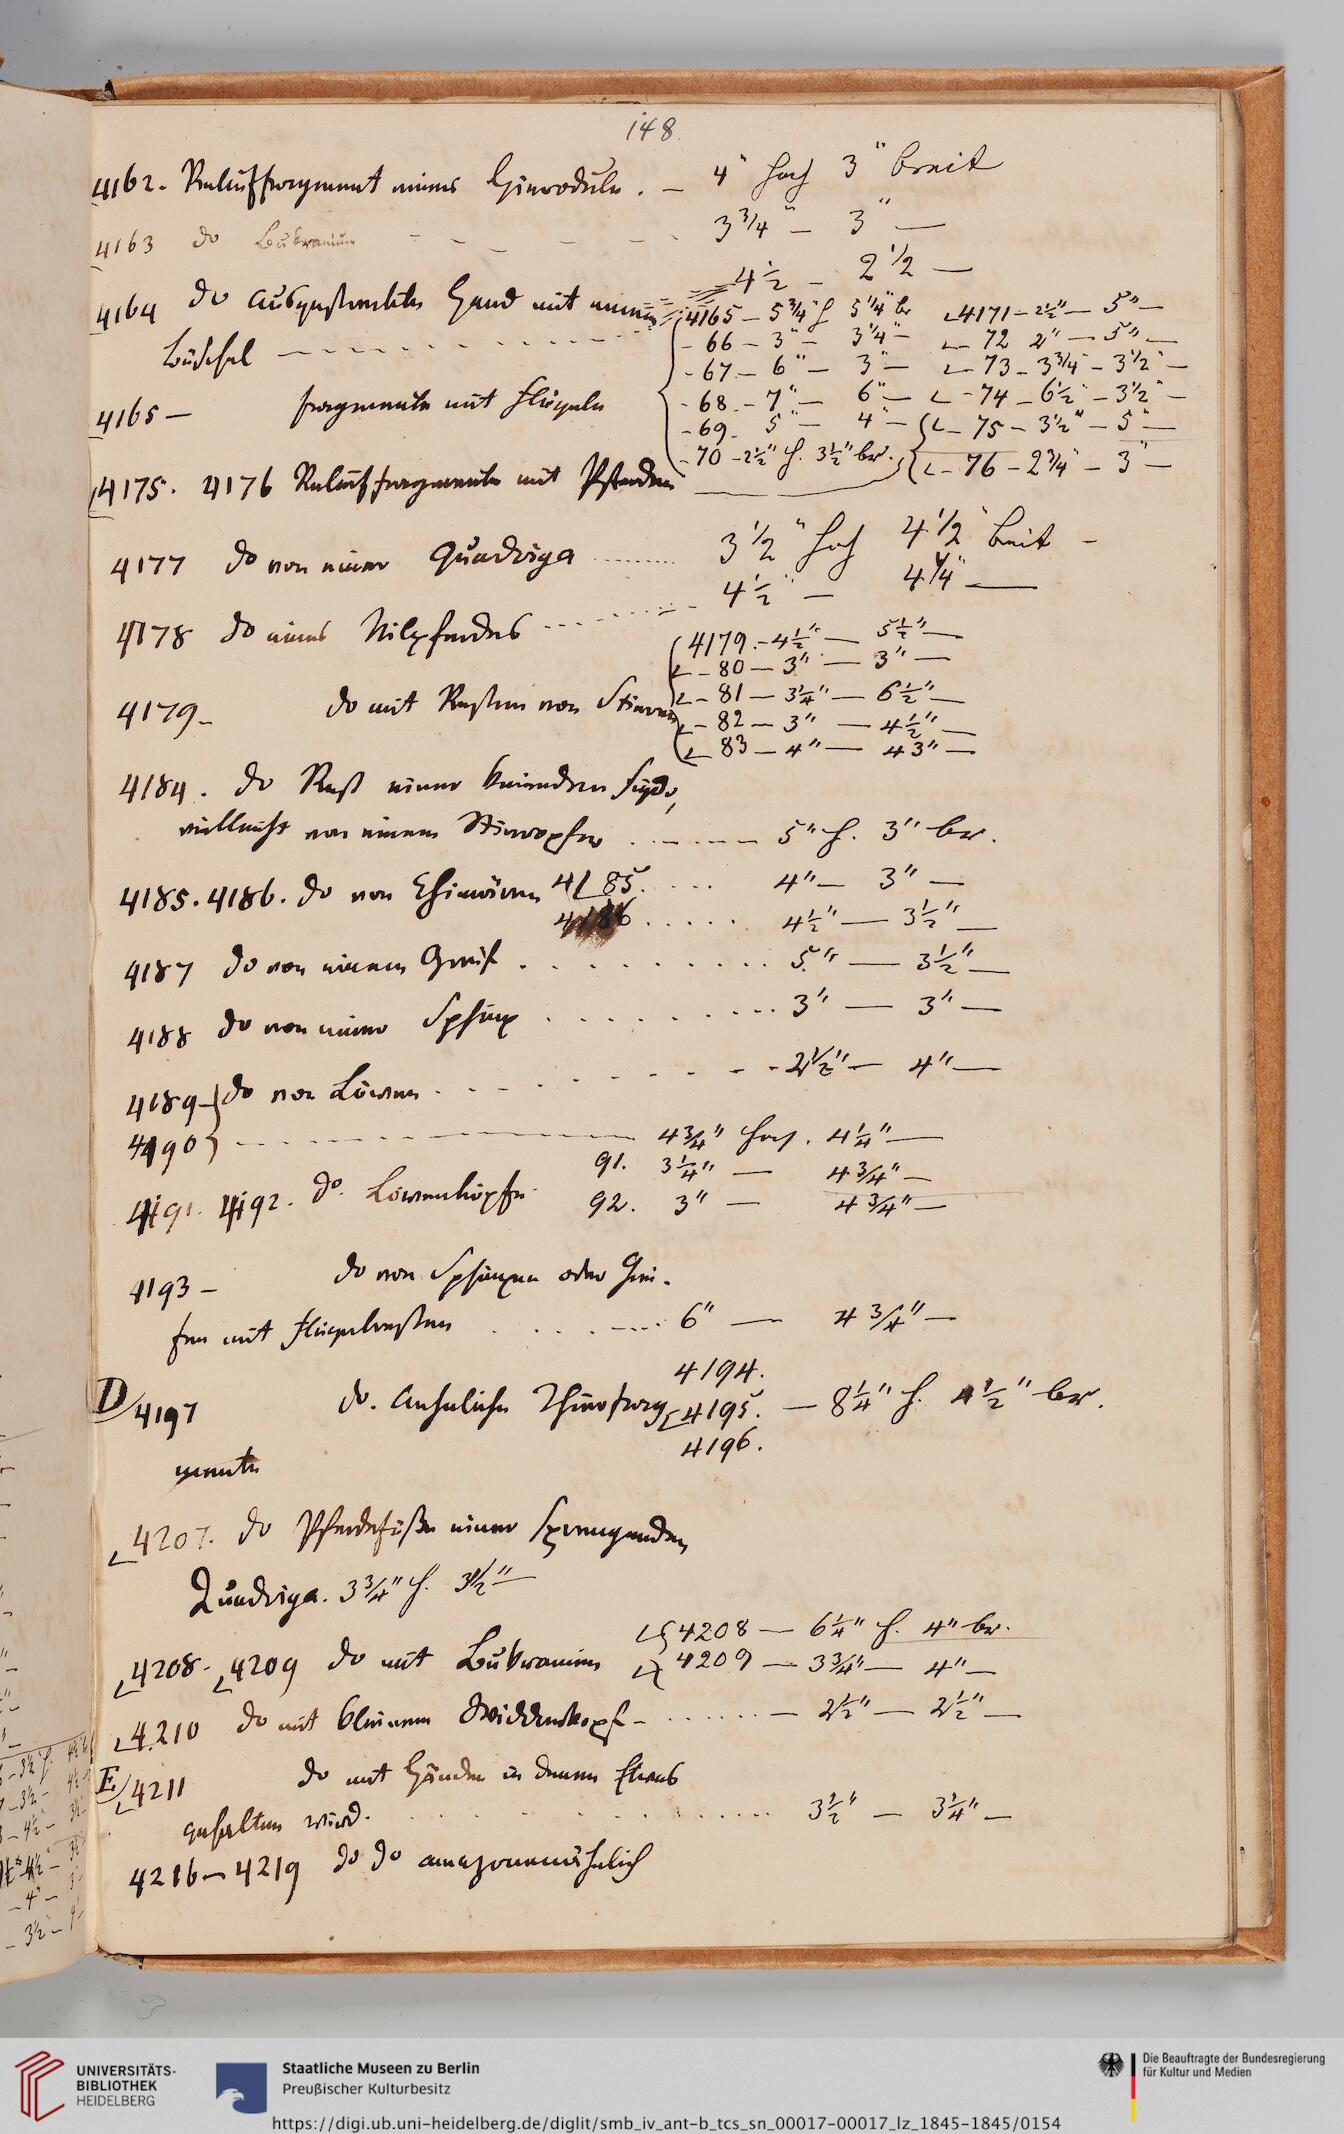 148.
4162. Relieffragment eines Hierodulen. — 4" hoch 3" breit
4163 do Bukranium - - - - - 3 3/4" — 3" —
4164 do ausgestreckte Hand mit einem 4 1/2 — 2 1/2 —
Büschel - - - - - - - -
4165 — fragmente mit Flügeln
4165 — 5 3/4" h 5 1/4" br
- 66 — 3" — 3 1/4" —
- 67 — 6" — 3" —
- 68 — 7" — 6" —
- 69. 5" — 4" —
- 70 — 2 1/2" h. 3 1/2" br.
4171 — 2 1/2" — 5" —
- 72 2" — 5" —
- 73 — 3 3/4" — 3 1/2" —
- 74 — 6 1/2" — 3 1/2" —
- 75 — 3 1/2" — 5" —
- 76 — 2 3/4" — 3" —
4175. 4176 Relieffragmente mit Pferden
4177 do von einer Quadriga ........ 3 1/2" hoch 4 1/2" breit —
4178 do eines Nilpferdes ........ 4 1/2" — 4 1/4" —
4179 — do mit Resten von Stieren
4179. — 4 1/2" — 5 1/2" —
- 80 — 3" — 3" —
- 81 — 3 1/4" — 6 1/2" —
- 82 — 3" — 4 1/2" —
- 83 — 4" — 4 3" —
4184. do Rest einer knienden Figur,
vielleicht von einem Stieropfer ...... 5" h. 3" br.
4185. 4186. do von Chimären 4185. .... 4" — 3" —
4186 ..... 4 1/2" — 3 1/2" —
4187 do von einem Greif .......... 5" — 3 1/2" —
4188 do von einer Sphinx .......... 3" — 3" —
4189 } do von Löwen - - - - - - - 2 1/2" — 4" —
4190 } - - - - - - - 4 3/4" hoch. 4 1/4" —
91. 3 1/4" — 4 3/4" —
4191. 4192. do. Löwenköpfe
92. 3" — 4 3/4" —
4193 — do von Sphinxen oder Grei-
fen mit Flügelresten ....... 6" — 4 3/4" —
4194.
D/ 4197 do. ähnliche Thierfrag 4195. — 8 1/4" h. 4 1/2" br.
4196.
mente
4207. do Pferdefüße einer springenden
Quadriga. 3 3/4" h. 3 1/2" —
4208 — 6 1/4" h. 4" br.
4208. 4209 do mit Bukranien 4209 — 3 3/4" — 4" —
4210 do mit kleinem Widderkopf - ...... — 2 1/2" — 2 1/2" —
E/ 4211 do mit Händen in denen Etwas
gehalten wird. .......... 3 1/2" — 3 1/4" —
4216 — 4219 do do amazonenähnlich
UNIVERSITÄTS-
BIBLIOTHEK
HEIDELBERG
Staatliche Museen zu Berlin
Preußischer Kulturbesitz
Die Beauftragte der Bundesregierung
für Kultur und Medien
https://digi.ub.uni-heidelberg.de/diglit/smb_iv_ant-b_tcs_sn_00017-00017_lz_1845-1845/0154